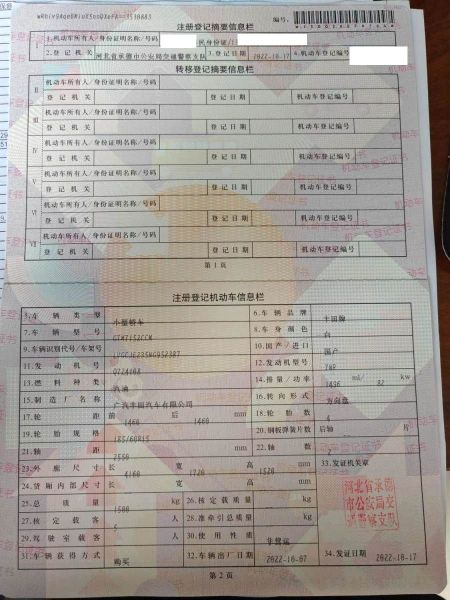 注册登记摘要信息栏
编号:
I 1.机动车所有人/身份证明名称/号码 居民身份证/
2.登记机关 河北省承德市公安局交通警察支队 3.登记日期 2022-10-17 4.机动车登记编号
转移登记摘要信息栏
II 机动车所有人/身份证明名称/号码
登记机关 登记日期 机动车登记编号
III 机动车所有人/身份证明名称/号码
登记机关 登记日期 机动车登记编号
IV 机动车所有人/身份证明名称/号码
登记机关 登记日期 机动车登记编号
V 机动车所有人/身份证明名称/号码
登记机关 登记日期 机动车登记编号
VI 机动车所有人/身份证明名称/号码
登记机关 登记日期 机动车登记编号
VII 机动车所有人/身份证明名称/号码
登记机关 登记日期 机动车登记编号
第1页
注册登记机动车信息栏
5.车辆类型 小型轿车 6.车辆品牌 丰田牌
7.车辆型号 8.车身颜色 白
9.车辆识别代号/车架号 10.国产/进口 国产
11.发动机号 12.发动机型号
13.燃料种类 汽油 14.排量/功率 1496 ml/ 82 kw
15.制造厂名称 广汽丰田汽车有限公司 16.转向形式 方向盘
17.轮距 前 1460 后 1460 mm 18.轮胎数 4
19.轮胎规格 185/60R15 20.钢板弹簧片数 后轴 片
21.轴距 2550 mm 22.轴数 2
23.外廓尺寸 长 4160 宽 1720 高 1520 mm 33.发证机关章
24.货厢内部尺寸 长 宽 高 mm
25.总质量 1500 kg 26.核定载质量 kg
27.核定载客 5 人 28.准牵引总质量 kg
29.驾驶室载客 人 30.使用性质 非营运
31.车辆获得方式 购买 32.车辆出厂日期 2022-10-07 34.发证日期 2022-10-17
河北省承德
市公安局交
通警察支队
第2页